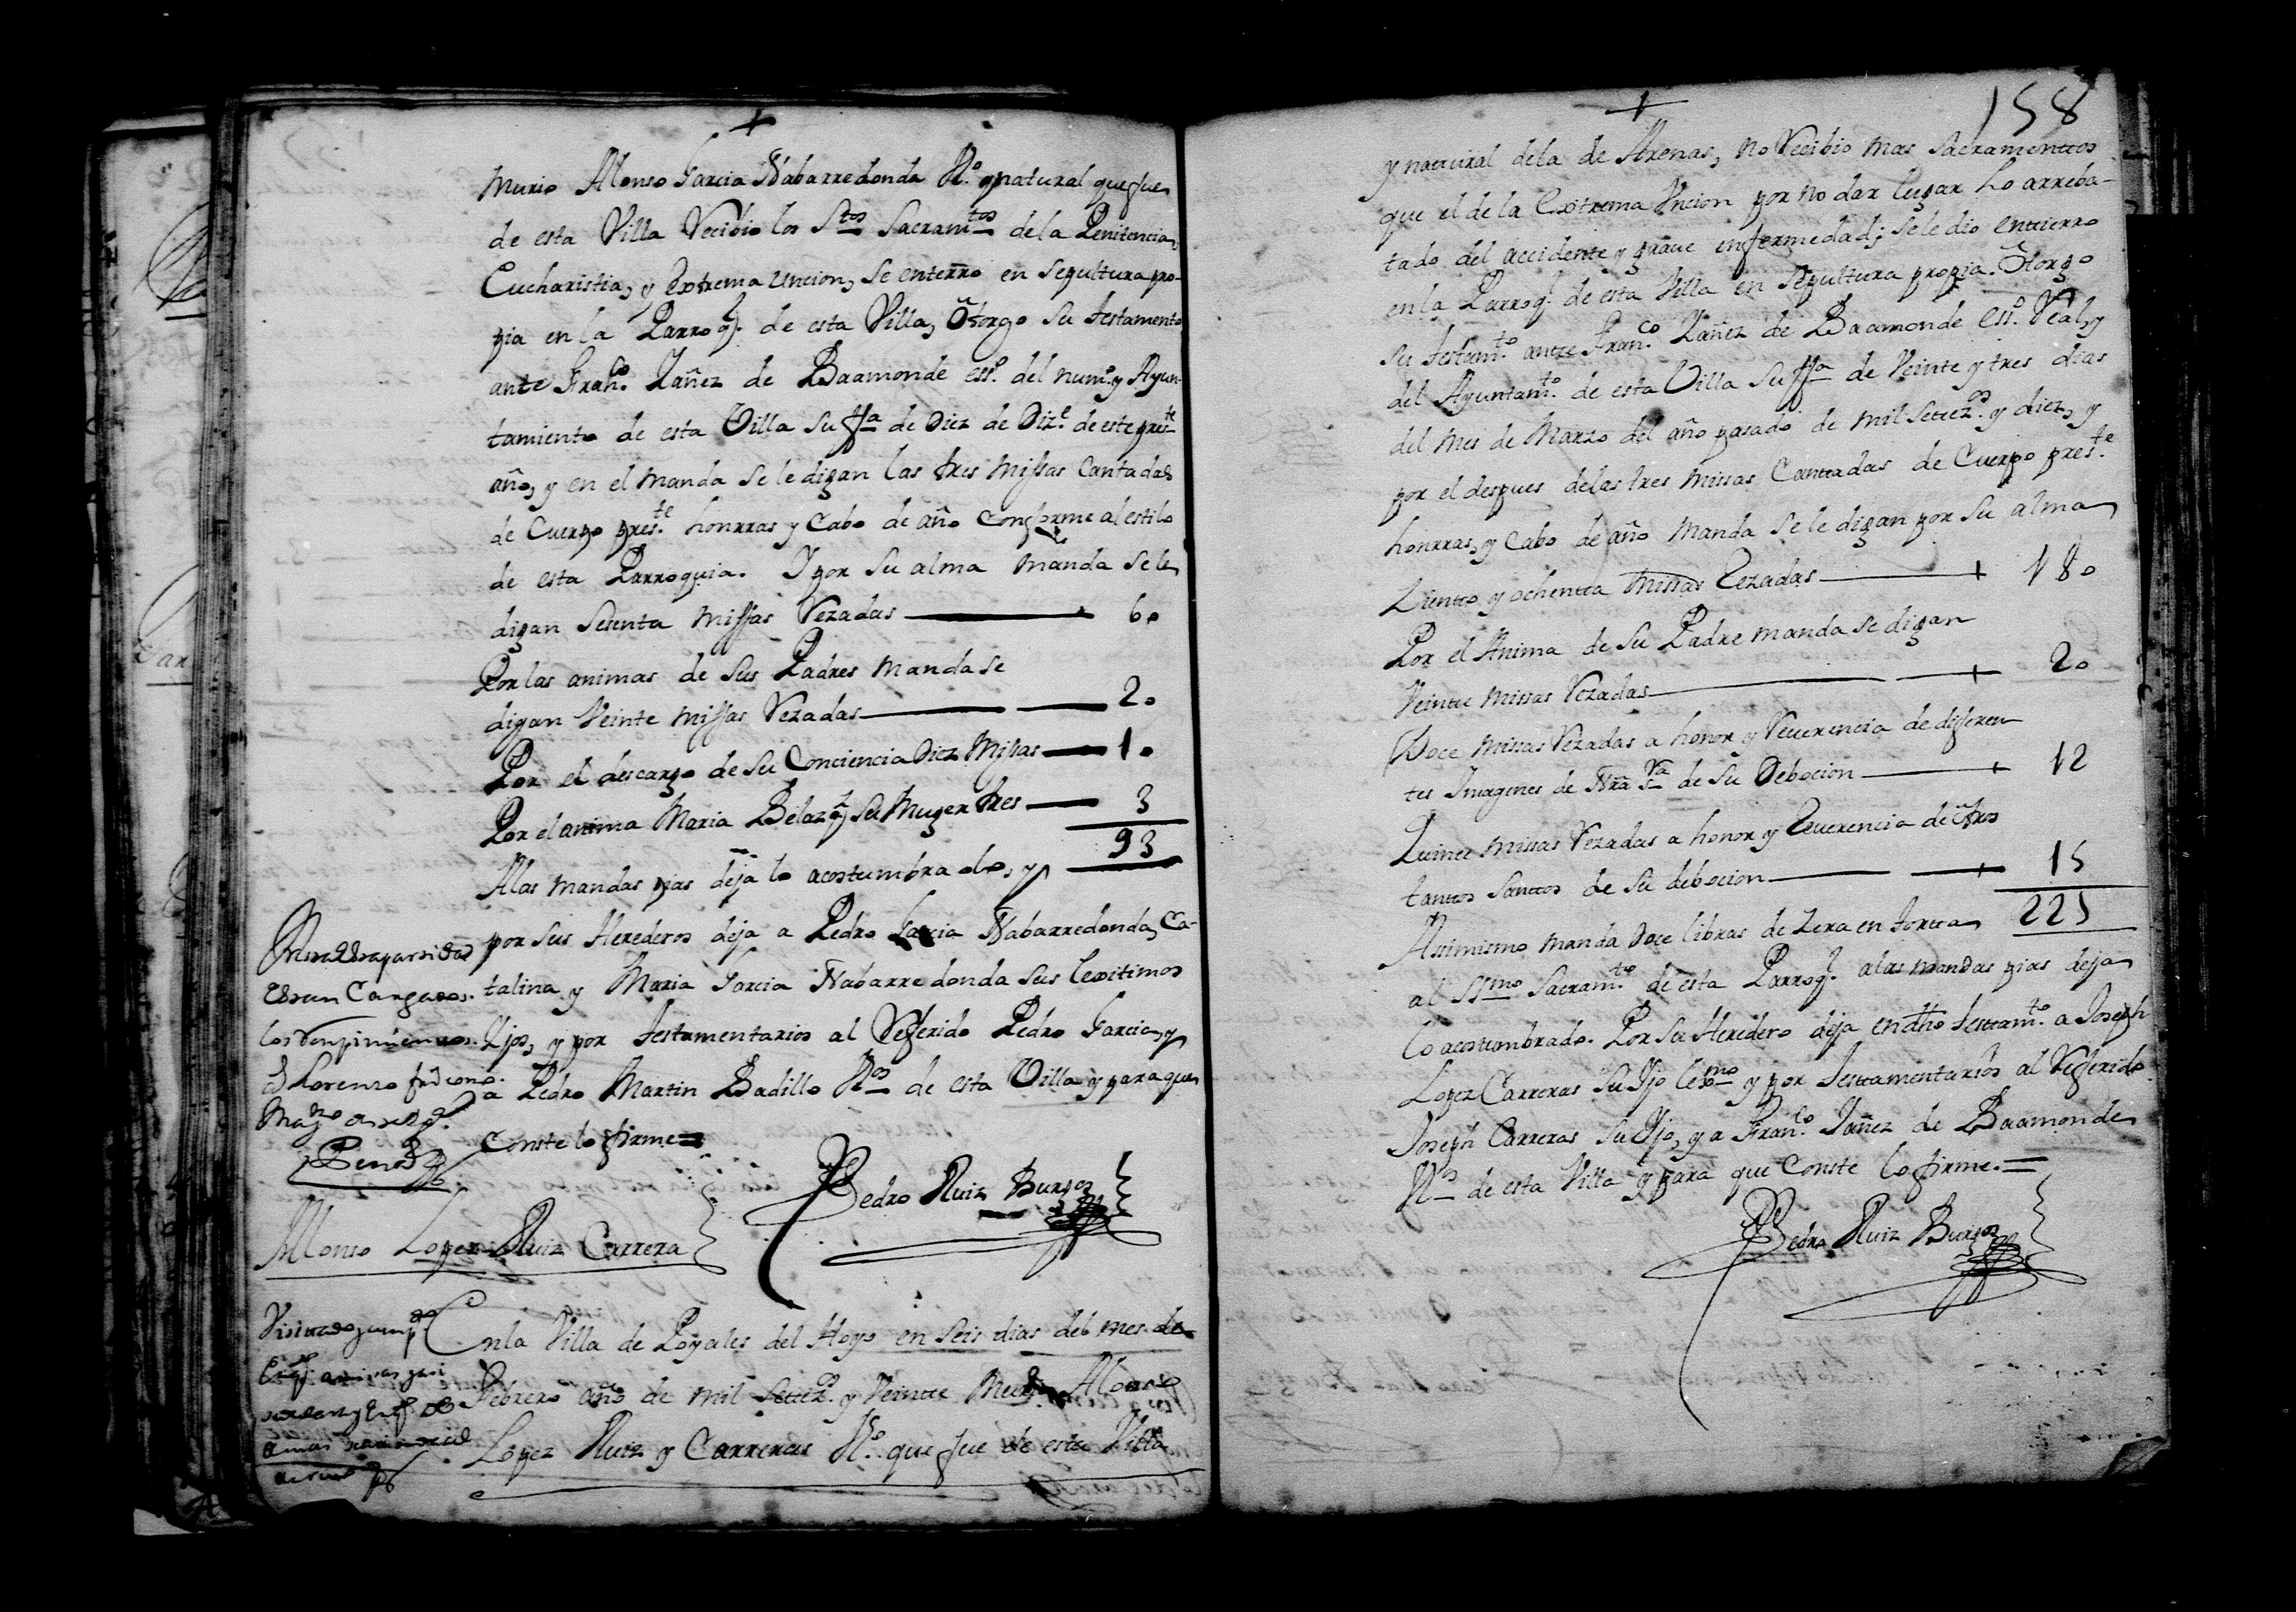 +
Murio Alonso Garcia Nabarredonda Vº. y natural que fue
de esta Villa Recibio los Stos Sacramtos de la Penitencia,
Eucharistia, y Extrema uncion, se enterro en sepultura pro-
pia en la Parroqª. de esta Villa, Otorgo su testamento
ante Franco. Yañez de Baamonde essº. del numº. y Ayun-
tamiento de esta Villa su fha de Diez de Dize. de este preste
año, y en el manda se le digan las tres Missas Cantadas
de Cuerpo preste. honrras y Cabo de año Conforme al estilo
de esta Parroquia. Y por su alma manda se le
digan sesenta missas Rezadas 60
Por las animas de sus Padres manda se
digan Veinte missas Rezadas 20
Por el descargo de su Conciencia Diez Missas 10
Por el anima Maria su Muger tres 3
93
A las mandas pias deja lo acostumbrado, y
por sus Herederos deja a Pedro Garcia Nabarredonda, Ca-
talina y Maria Garcia Nabarredonda sus lexitimos
Yjos, y por testamentarios al Referido Pedro Garcia, y
a Pedro Martin Badillo Vos de esta Villa y para que
Conste lo firme =
Pedro Ruiz Burgos
Alonso Lopez Ruiz Carrera
En la Villa de Poyales del Hoyo en seis dias del mes de
Febrero año de mil setezº. y Veinte Murº. Alonso
Lopez Ruiz y Carreras Vº. que fue de esta Villa
+
158
y natural de la de Arenas, no Recibio mas sacramentos
que el de la Extrema Uncion por no dar lugar lo arreba-
tado del accidente y graue enfermedad; se le dio entierro
en la Parroqª. de esta Villa en sepultura propia. Otorgo
su testamto. ante Franco. Yañez de Baamonde essº. Real, y
del Ayuntamto. de esta Villa su fha de Veinte y tres dias
del mes de Marzo del año pasado de mil setezos. y diez, y
por el despues de las tres missas Cantadas de Cuerpo preste.
honrras, y Cabo de año Manda se le digan por su alma
Ziento y ochenta missas Rezadas 180
Por el Anima de su Padre manda se digan
Veinte missas Rezadas 20
Doce missas Rezadas a honor y Reuerencia de diferen
tes Imagenes de Nra Sra de su Debocion 12
Quince missas Rezadas a honor y Reuerencia de otros
tantos santos de su debocion 15
Assimismo manda Doce libras de Zera en torta 225
al SSmo Sacramto. de esta Parroqª. a las mandas pias deja
lo acostumbrado. Por su Heredero deja en dho testamto. a Joseph
Lopez Carreras su Yjo lexmo y por testamentarios al Referido
Joseph Carreras su Yjo, y a Franco. Yañez de Baamonde
Vos de esta Villa y para que Conste lo firme. =
Pedro Ruiz Burgos